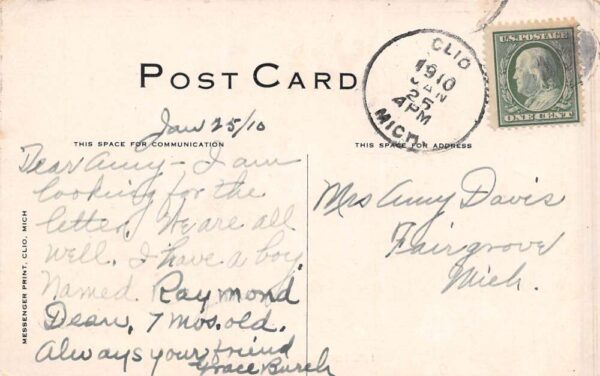 POST CARD
CLIO
1910
JAN
25
4 PM
MICH.
U.S. POSTAGE
ONE CENT
Jan 25/10
THIS SPACE FOR COMMUNICATION
THIS SPACE FOR ADDRESS
MESSENGER PRINT, CLIO, MICH
Dear Amy - I am
looking for the
letter. We are all
well. I have a boy
Named Raymond
Dean, 7 mos. old.
Always your friend
Grace Burch
Mrs Amy Davis
Fairgrove
Mich.